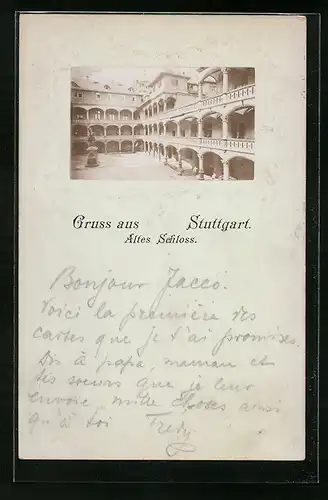 Gruss aus Stuttgart.
Altes Schloss.
Bonjour Jacco.
Voici la première des
cartes que je t'ai promises.
Dis à papa, maman et
tes soeurs que je leur
envoie mille choses ainsi
qu'à toi Fredy